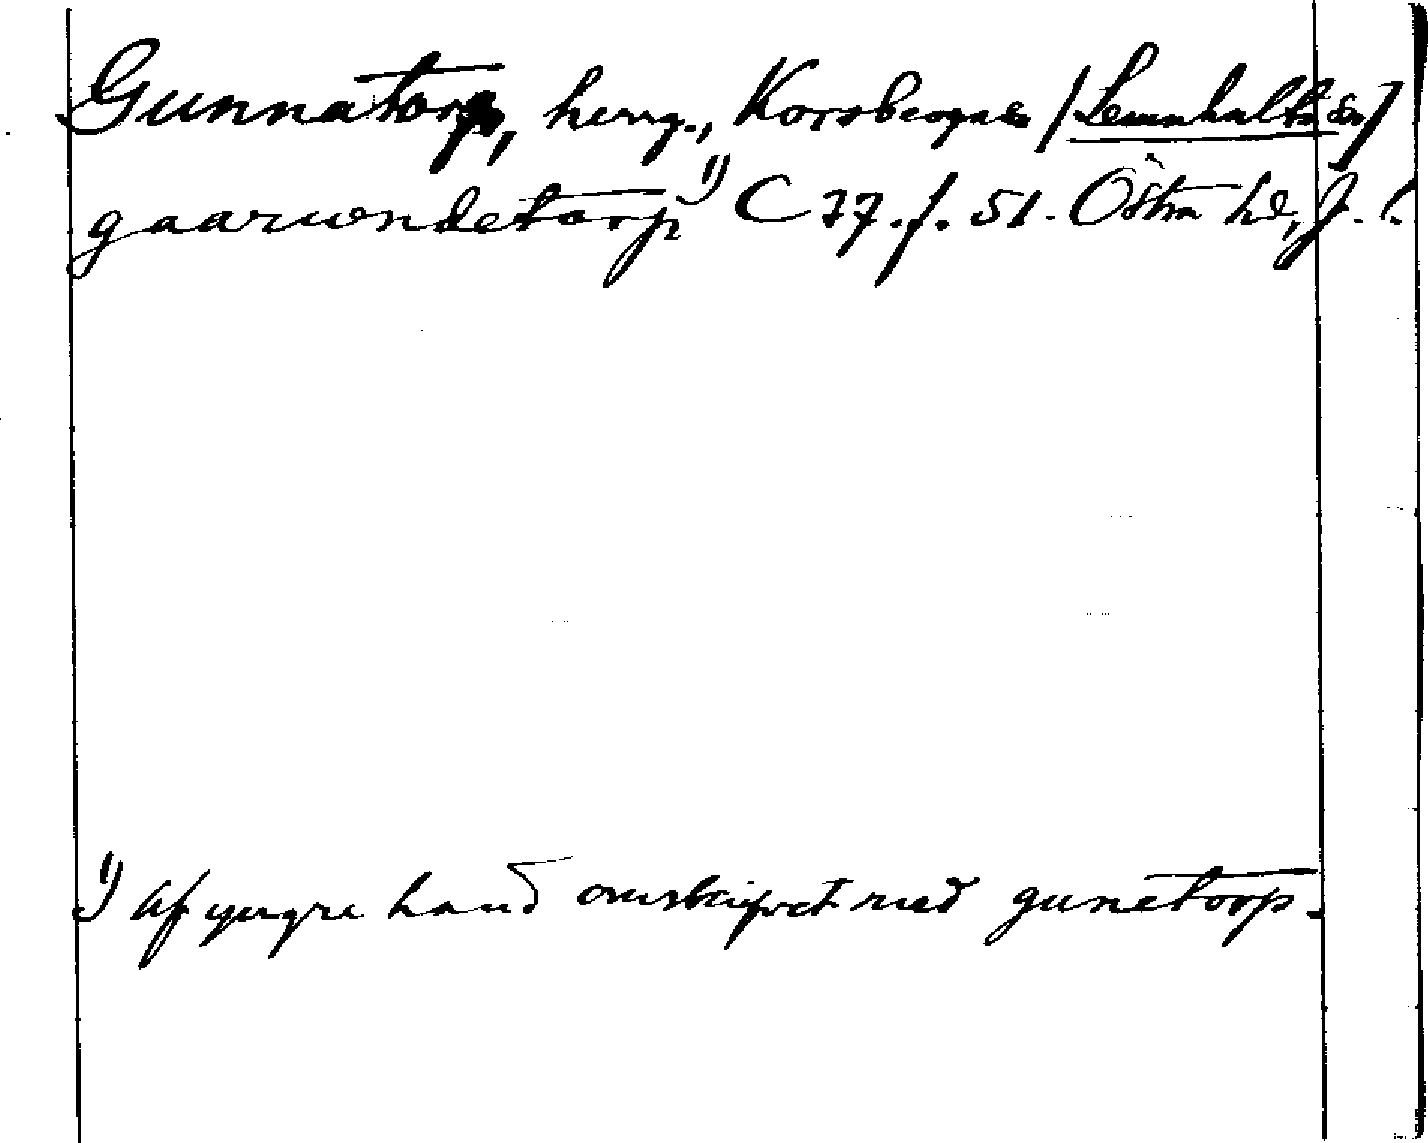 Gunnatorp, herrg., Korsberga sn [Lemnhults sn]
gaarwendetorp 1) C 37. f. 51. Östra hd, J. l.
1) Af yngre hand omskrifvet med gunetorp.